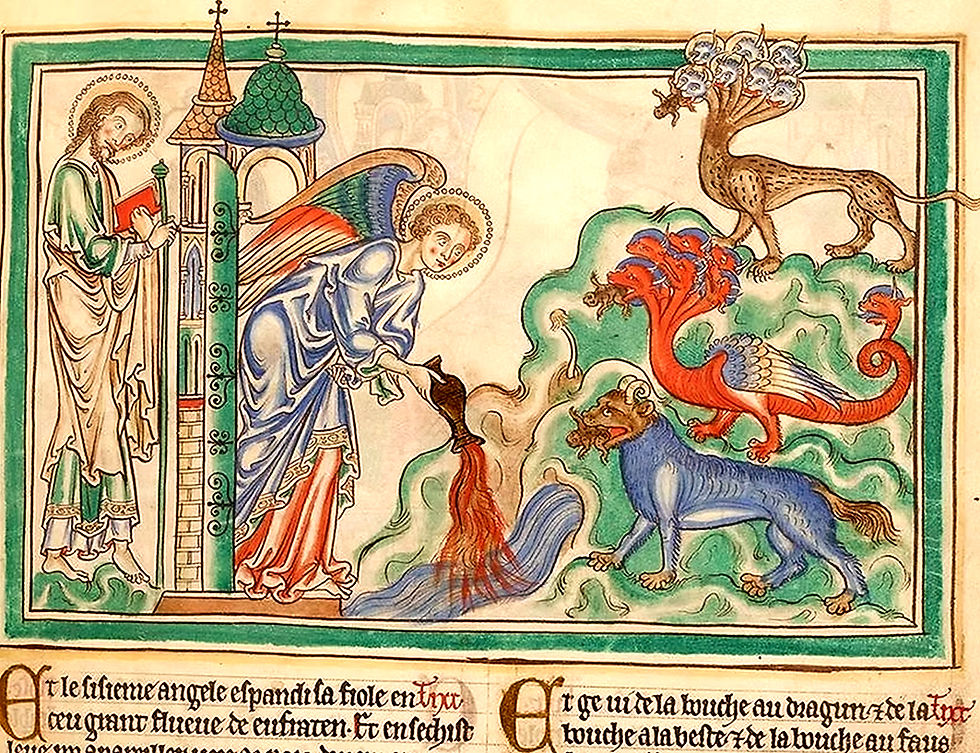 Et le sisieme angele espandi sa fiole en Tixt
ceu grant flueue de eufraten. Et ensechist
Et ge ui de la bouche au dragun ⁊ de la Tixt
bouche a la beste ⁊ de la bouche au faus